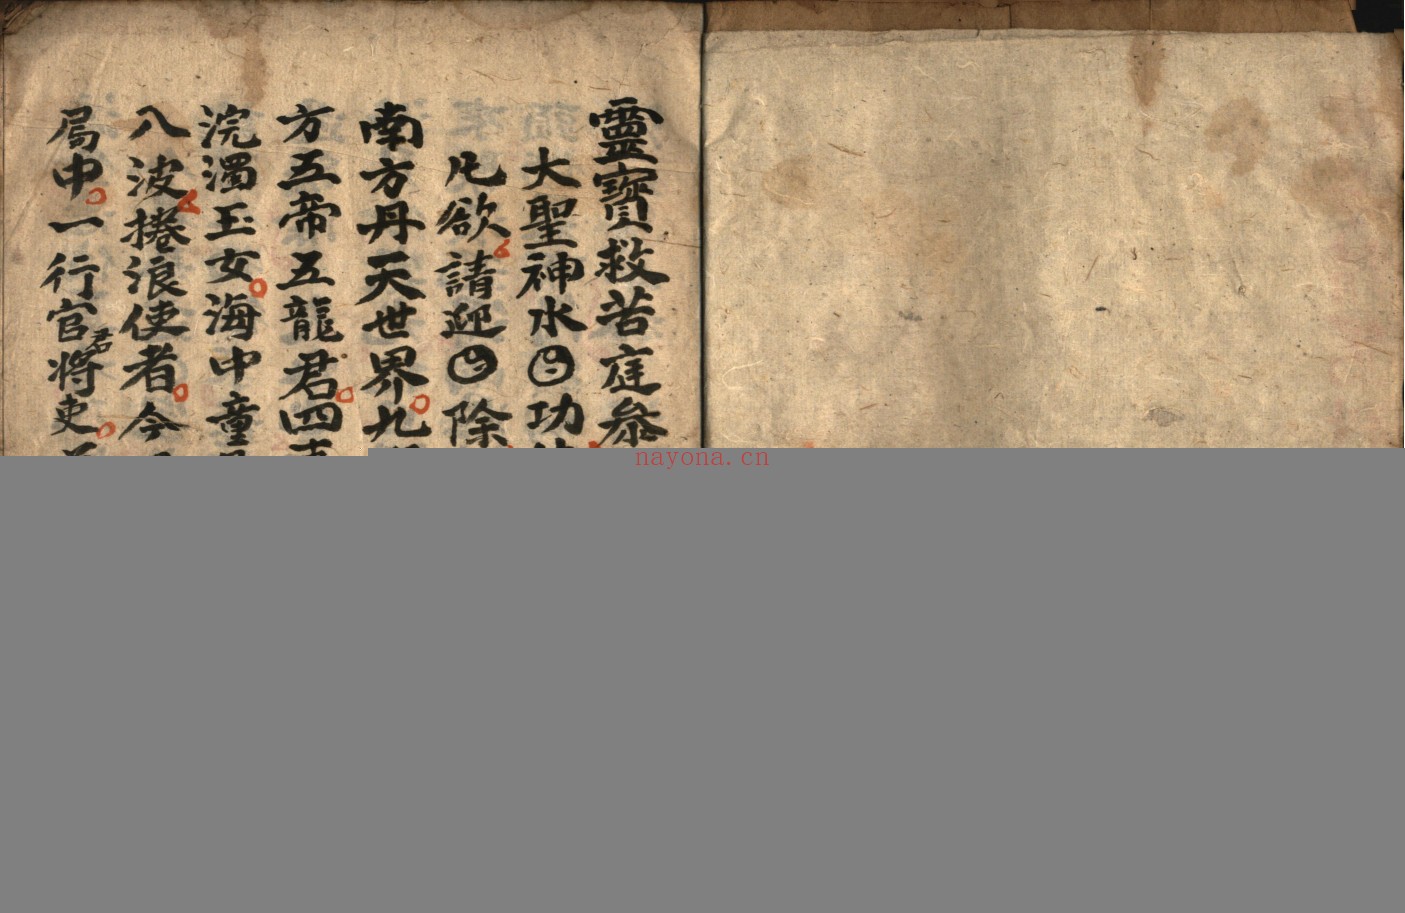 靈寶救苦庭參
大聖神水㊁功
凡欲請迎㊁除
南方丹天世界九
方五帝五龍君四
浣濁玉女海中童
八波捲浪使者今
局中一行官將君吏
nayona.cn